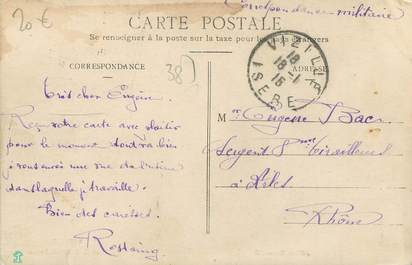 20 €
Correspondance militaire
CARTE POSTALE
Se renseigner à la poste sur la taxe pour les pays étrangers
CORRESPONDANCE
38)
ADRESSE
VIZILLE
18-1
15
ISERE
Très cher Eugène.
Reçu votre carte avec plaisir
pour le moment
je vous envoie une vue de l'usine
dans laquelle je travaille.
Bien des caresses.
Rostaing
Mr Eugène Bac
Sergent 8me tirailleurs
à Arles
Rhône